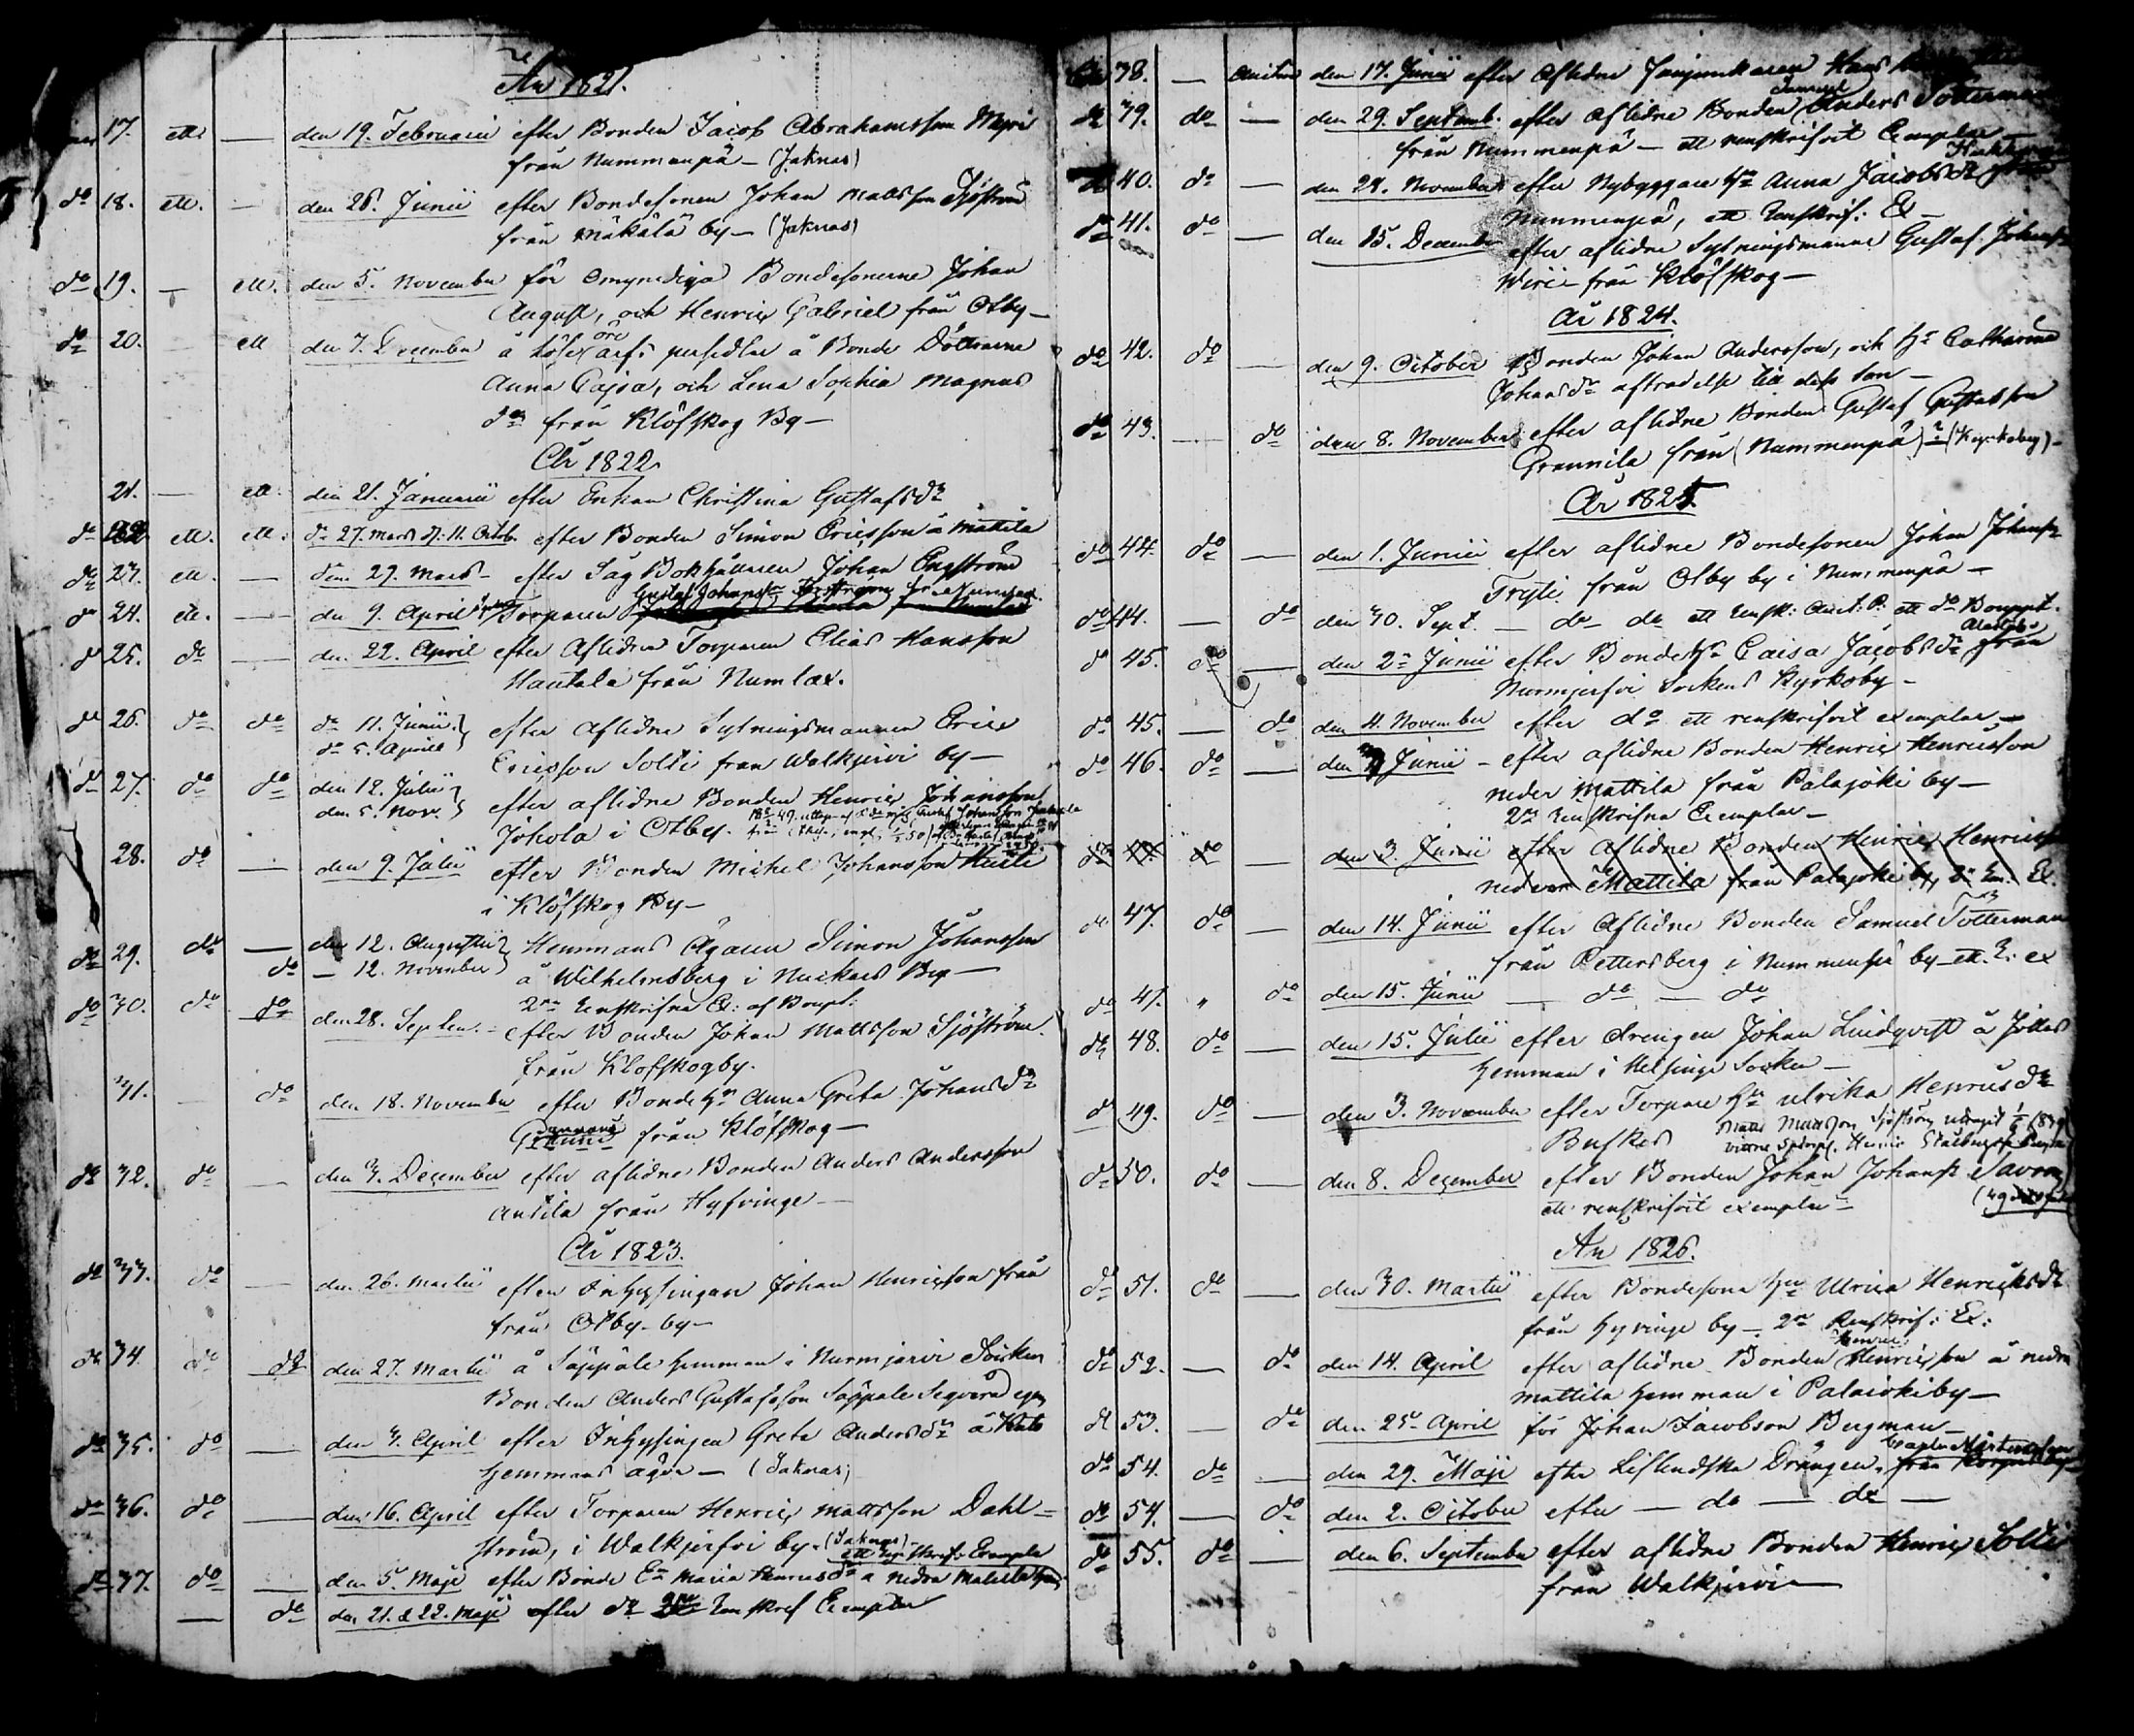 År 1821.
17. ett. — den 19. Februarii efter Bonden Jacob Abrahamsson Myri
från Nummenpä — (Saknas)
do 18. ett. — den 26. Junii efter Bondesonen Johan Mattsson Sjöström
från Mäkälä by — (Saknas)
do 19. — ett. den 5. November för omyndiga Bondesönerne Johan
August, och Henric Gabriel från Otby —
do 20. ett den 7. December å lösöre arfs persedlar å Bonde Döttrarne
Anna Cajsa, och Lena Sophia Magnus
dr från Klöfskog By —
År 1822.
21. — ett. den 21. Januarii efter Enkan Christina Gustafsdr
do 22 ett. ett. dn 27. Mars d. 11. Octob. efter Bonden Simon Ericsson å Mattila
do 23. ett. — den 29. Mars — efter Såg Bokhållaren Johan Engström
do 24. ett. — den 9. April efter Torparen Gustaf Johanss.
do 25. do — den 22. April efter Aflidne Torparen Elias Hansson
Hautala från Numlax.
do 26. do do dn 11. Junii. dn 5. Aprill efter Aflidne Sytningsmannen Eric
Ericsson Solti från Walkjervi by —
do 27. do do den 12. Julii den 5. Nov. efter aflidne Bonden Henric Johansson
Johola i Otby.
28. do — den 9. Julii efter Bonden Michel Johansson
i Klöfskog By —
do 29. do — den 12. Augustii Hemmans Ägaren Simon Johansson
do — 12. November å Wilhelmsberg i Nuckars By —
2ne Renskrifna Ex: af Boupt:
do 30. do do den 28. Septem. — efter Bonden Johan Mattsson Sjöström.
från Klöfskogby.
31. — do den 18. November efter Bonde Hu Anna Greta Johansdr
från Klöfskog —
do 32. do — den 3. December efter aflidne Bonden Anders Andersson
Antila från Hyfvinge —
År 1823.
do 33. do — den 26. Martii efter Inhysingen Johan Henricsson från
från Otby by —
do 34 do do den 27. Martii å Säppälä hemman i Nurmjärvi Socken
Bonden Anders Gustafsson Säppälä
do 35. do — den 3. April efter Inhysingen Greta Andersdr å
Hemmans ägor — (Saknas)
do 36. do — den 16. April efter Torparen Henric Mattsson Dahl=
ström, i Walkjerfvi by. (Saknas)
ett Renskrif: Exemplar
do 37. do — den 5. Maji efter Bonde En Maria Henricsdr å Nedra Mattila
— do den 21. & 22. Maji efter do 2ne Renskref Exemplar
38. — den 17. Junii efter Aflidne Hans
Samuel
do 39. do — den 29. Septemb. efter Aflidne Bonden Anders Totterman
från Nummenpä — ett renskrifvit Exemplar —
do 40. do — den 28. November efter Nybyggare Hu Anna Jacobsdr
Nummenpä, ett Renskrif: Ex —
do 41. do — den 15. December efter aflidne Sytningsmannen Gustaf Johanss.
Wiri från Klöfskog —
År 1824.
do 42. do — den 9. October Bonden Johan Andersson, och Hu Catharina
Johansdr afträdelse till dess son —
do 43. — do den 8. November efter aflidne Bonden Gustaf Gustafsson
Grannila från (Nummenpä) (Kyrkoby) —
År 1825.
do 44. do — den 1. Junii efter aflidne Bondesonen Johan Johanss.
från Otby by i Nummenpä —
do 44. — do den 30. Sept. — do do ett Rensk:
do 45. do — den 2n Junii efter Bonde Hu Caisa Jacobsdr från
Nurmjerfvi Sockens Kyrkoby —
do 45. — do den 4. November efter do ett renskrifvit exemplar —
do 46. do — den 3 Junii — efter aflidne Bonden Henric Henricsson
neder Mattila från Palajoki by —
2ne Renskrifna Exemplar —
do do — den 3. Junii efter Aflidne Bonden Henric Henricsson
nedern Mattila från Palajoki by, 2ne Ren. Ex.
do 47. do — den 14. Junii efter Aflidne Bonden Samuel Totterman
från Pettersberg i Nummenpä by — ett R: ex
do 47. „ do den 15. Junii — do — do
do 48. do — den 15. Julii efter Drengen Johan Lindqvist å
Hemman i Helsinge Socken —
do 49. do — den 3. November efter Torpare Hu Ulrika Henricsdr
Buskas
do 50. do — den 8. December efter Bonden Johan Johanss.
ett renskrifvit exemplar —
År 1826.
do 51. do — den 30. Martii efter Bondesone Hu Ulrica Henricksdr
från Hyvinge by — 2ne Renskrif: Ex:
do 52. — do den 14. April efter aflidne Bonden Henricsson å nedra
Mattila Hemman i Palaiokiby —
do 53. — do den 25. April för Johan Jacobson Bergman —
do 54. do — den 29. Maji efter Liflendska Drängen
do 54. — do den 2. October efter — do — do —
do 55. do — den 6. September efter aflidne Bonden Henric Solti
från Walkjervi —